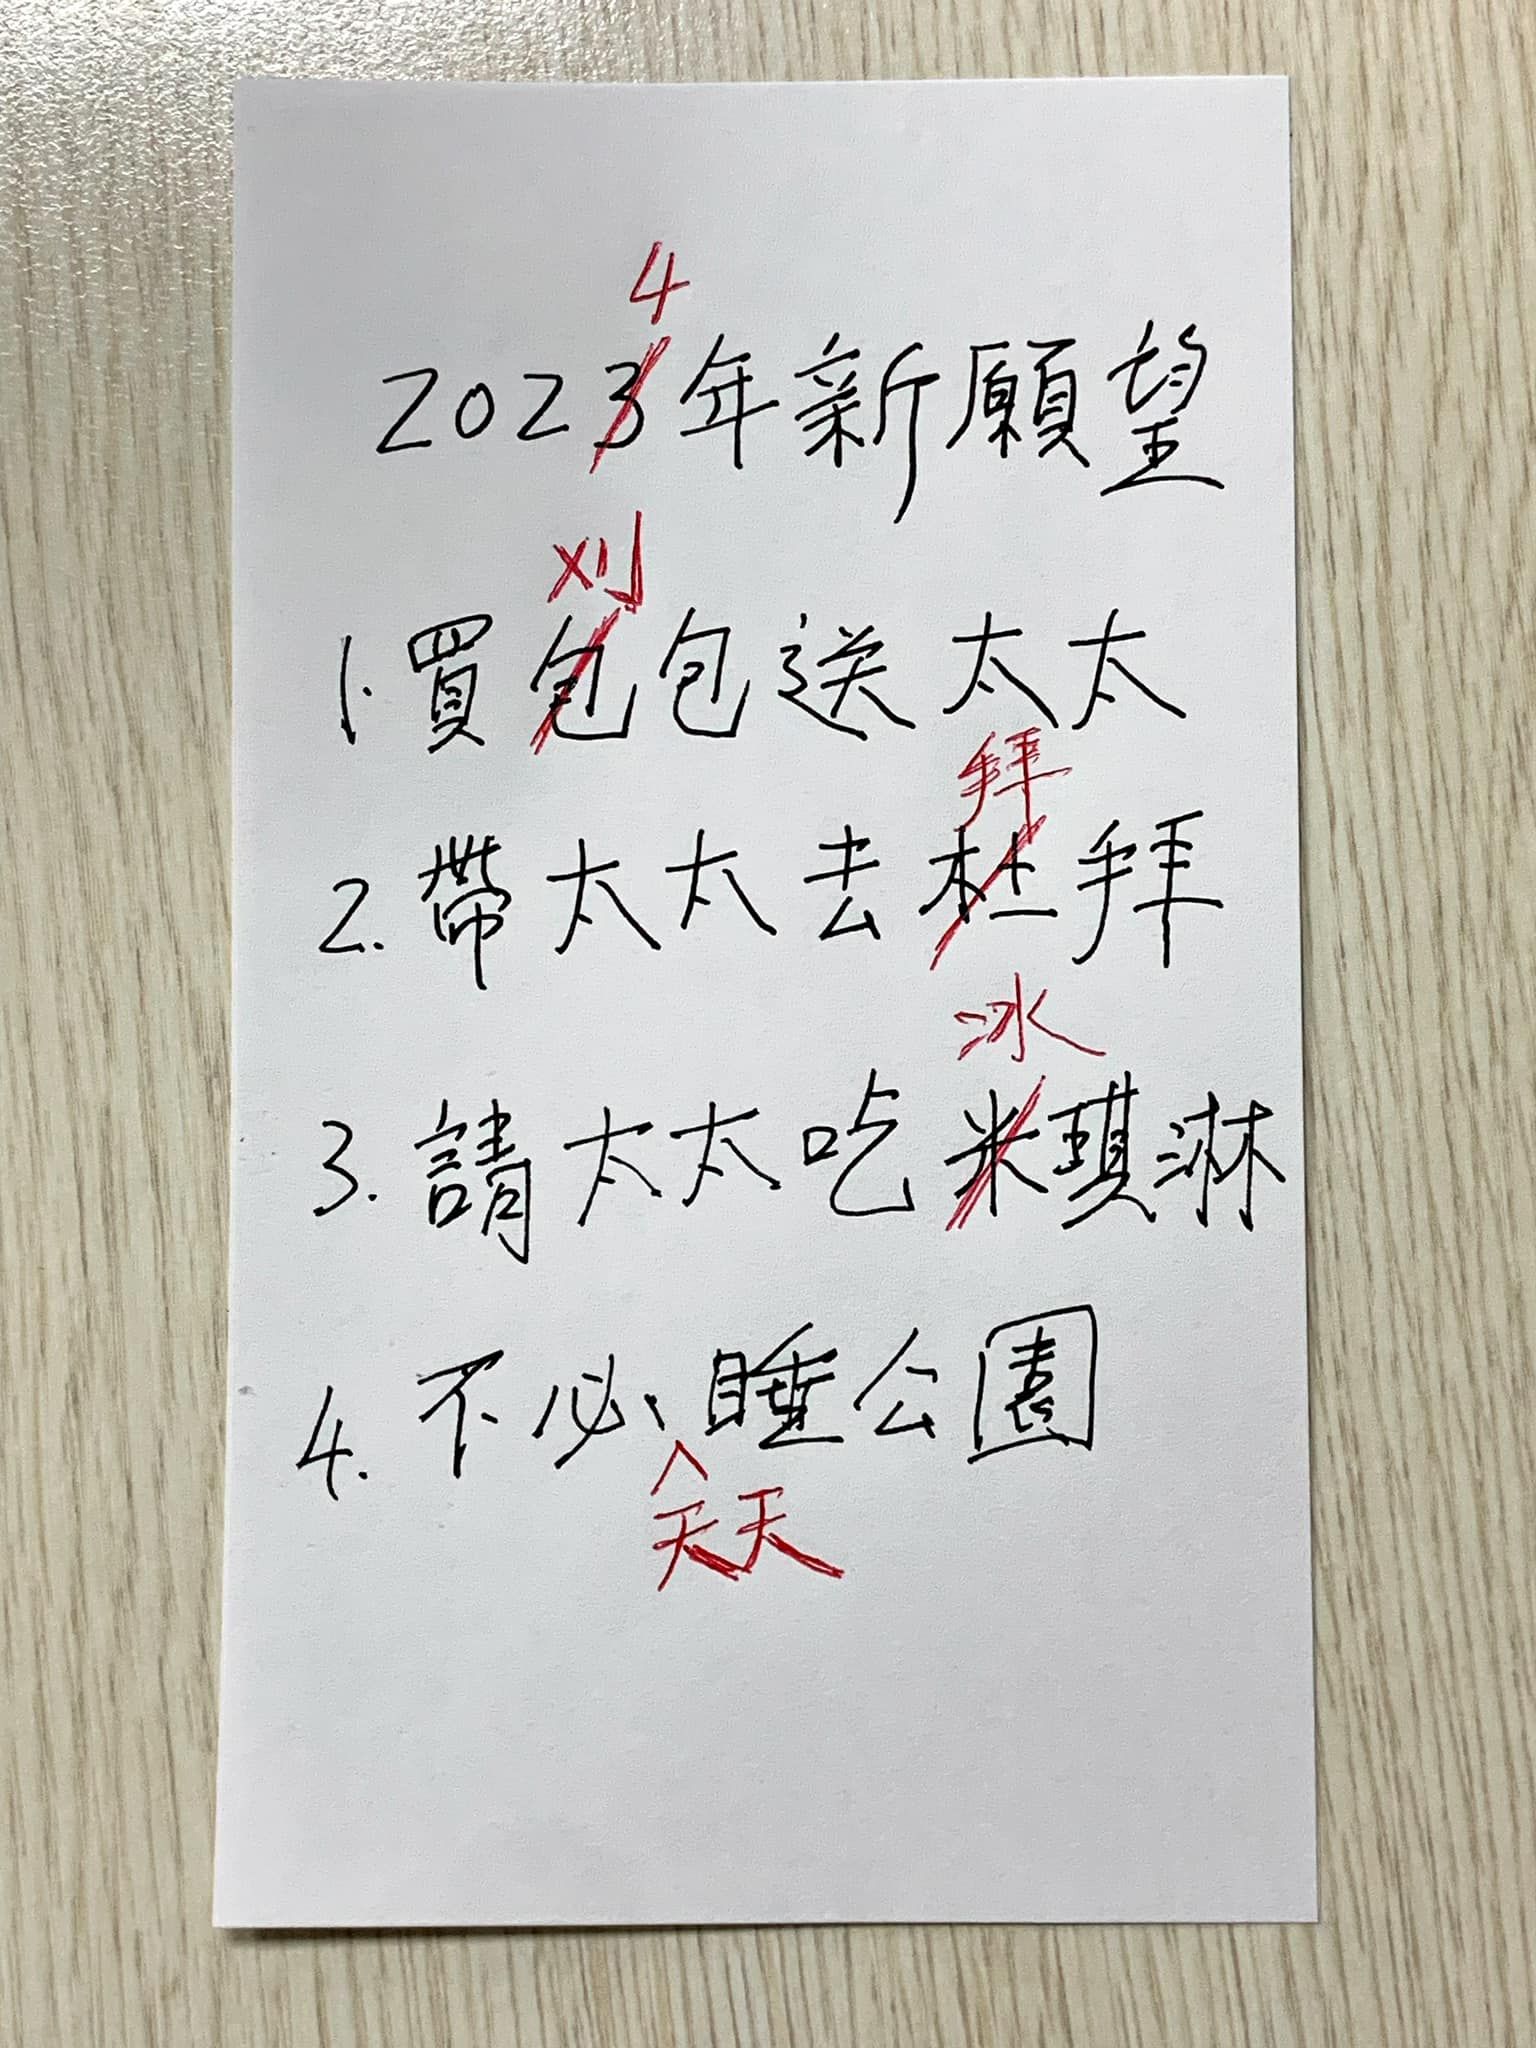 4
2023年新願望
刈
1.買包包送太太
拜
2.帶太太去杜拜
冰
3.請太太吃米琪淋
4.不必睡公園
天天